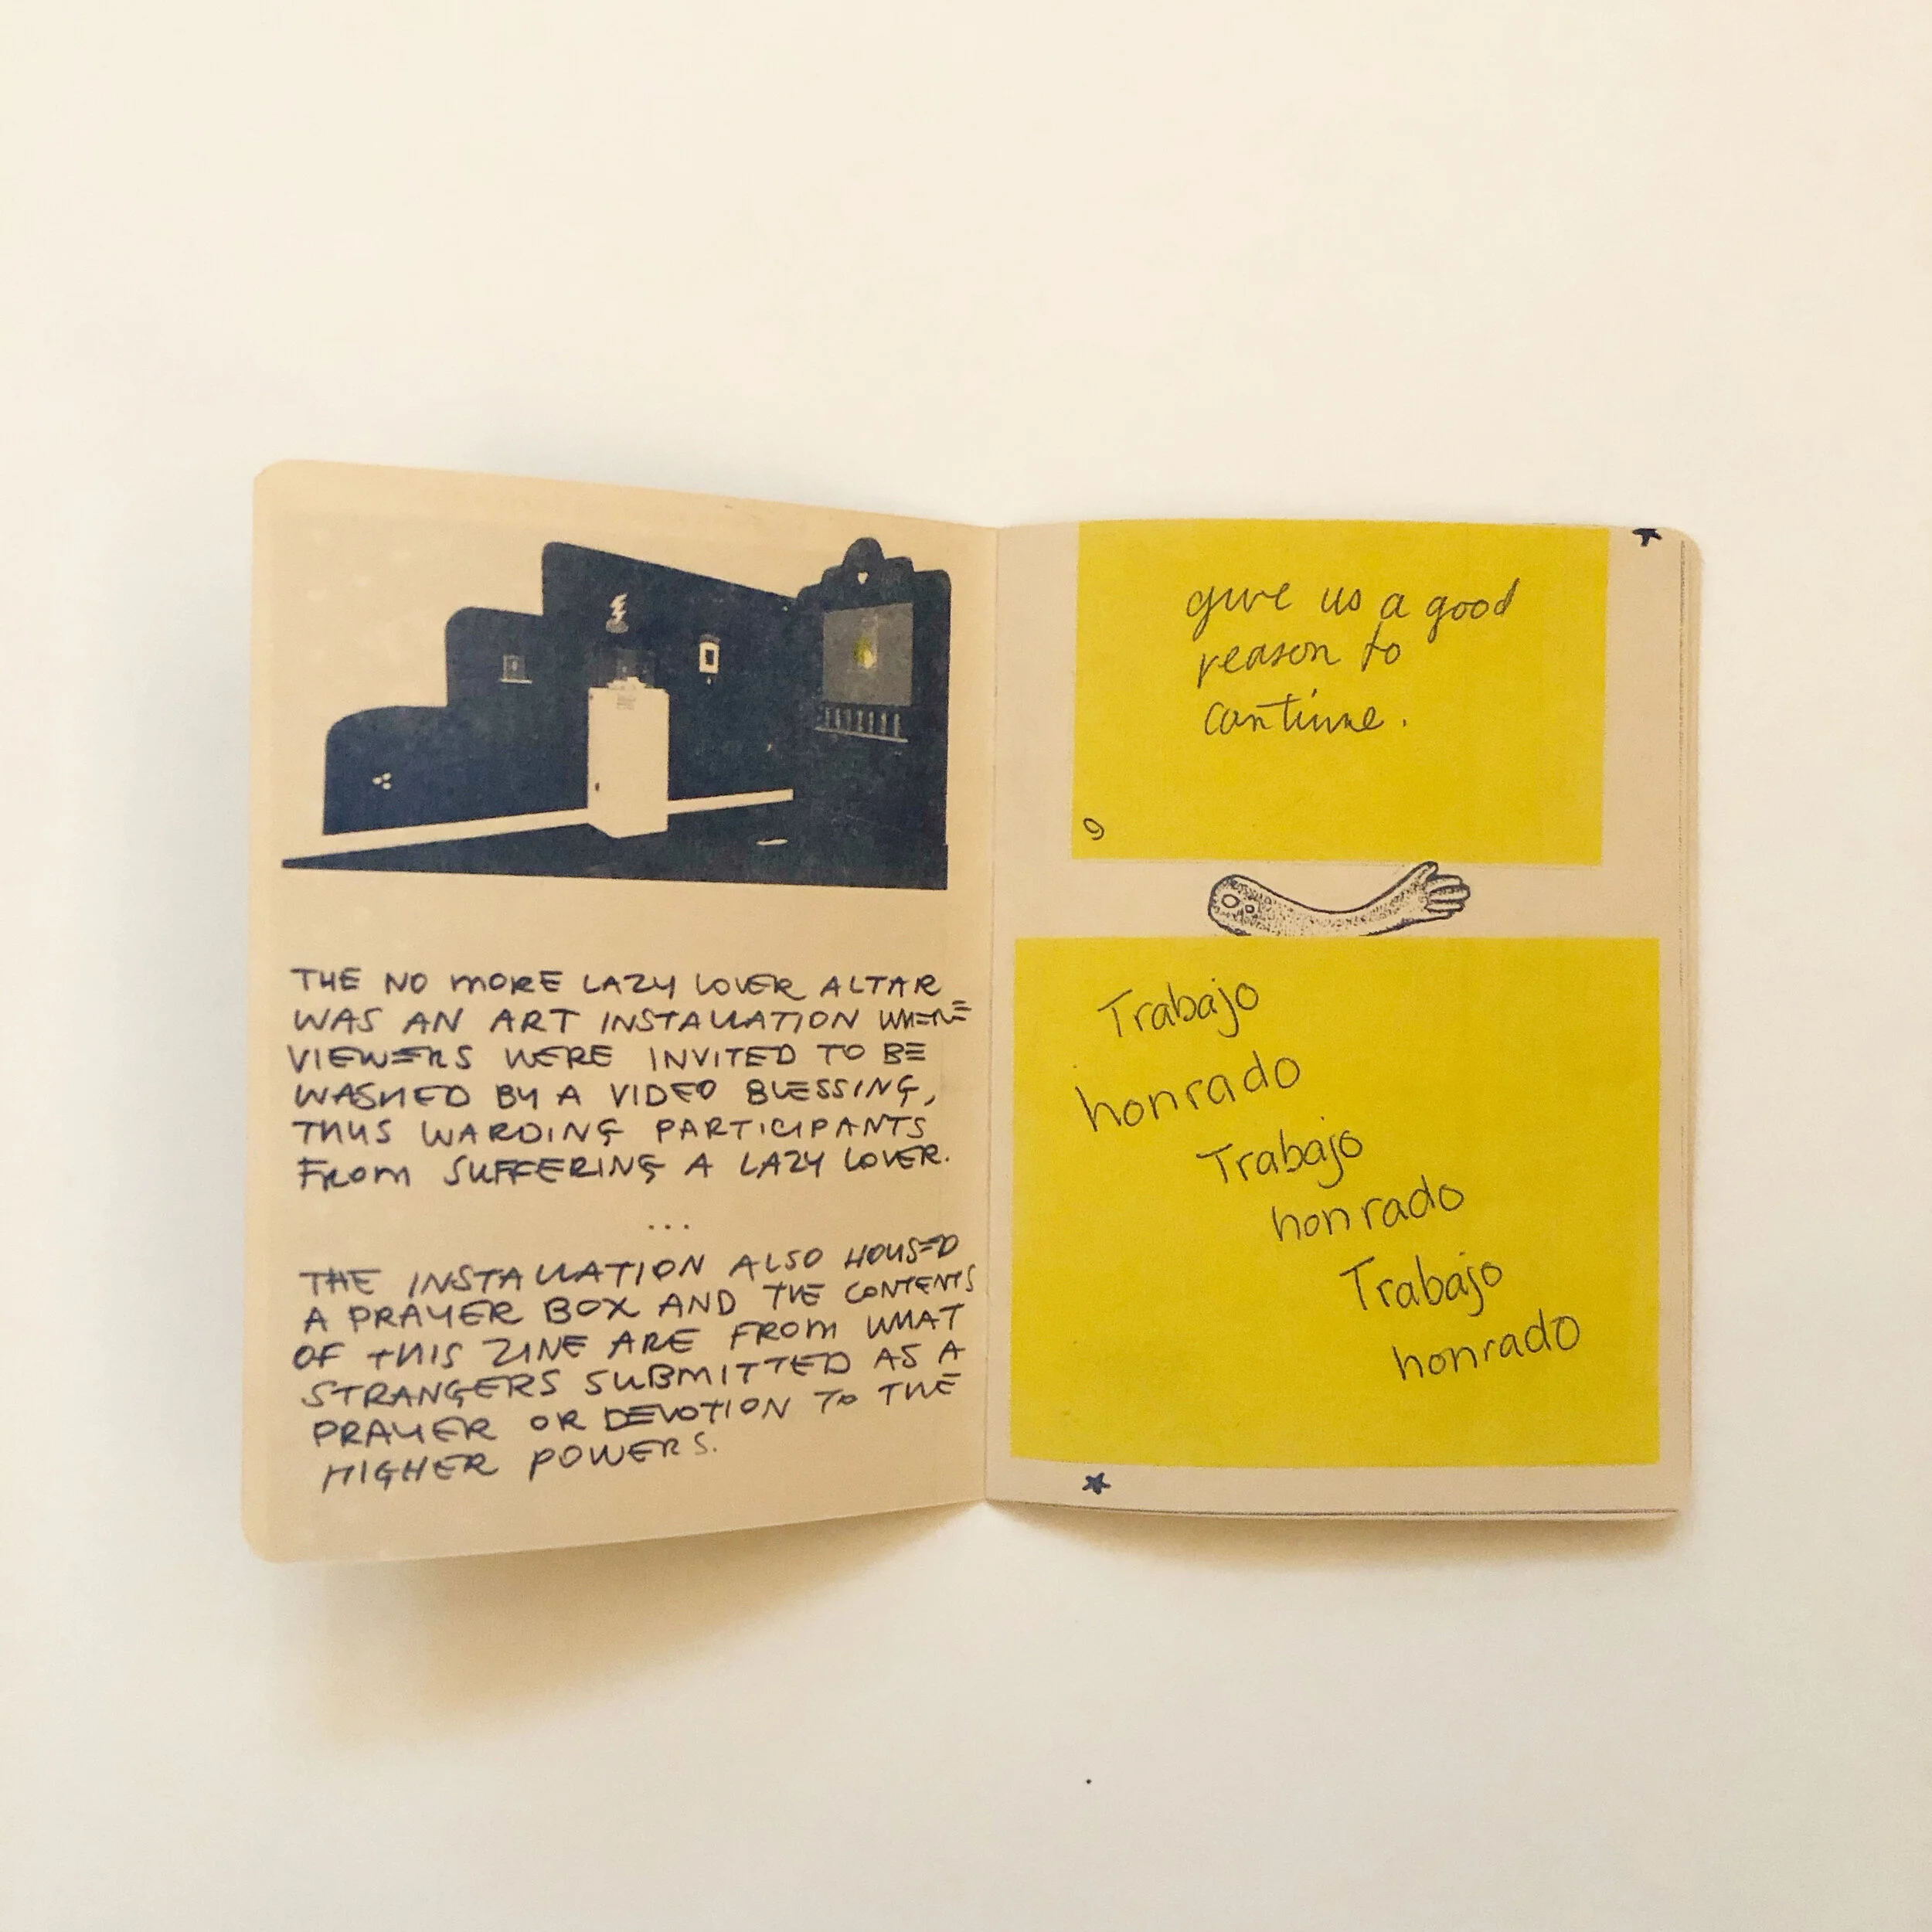 THE NO MORE LAZY LOVER ALTAR
WAS AN ART INSTALLATION WHERE
VIEWERS WERE INVITED TO BE
WASHED BY A VIDEO BLESSING,
THUS WARDING PARTICIPANTS
FROM SUFFERING A LAZY LOVER.
...
THE INSTALLATION ALSO HOUSED
A PRAYER BOX AND THE CONTENTS
OF THIS ZINE ARE FROM WHAT
STRANGERS SUBMITTED AS A
PRAYER OR DEVOTION TO THE
HIGHER POWERS.
give us a good
reason to
continue.
9
Trabajo
honrado
Trabajo
honrado
Trabajo
honrado